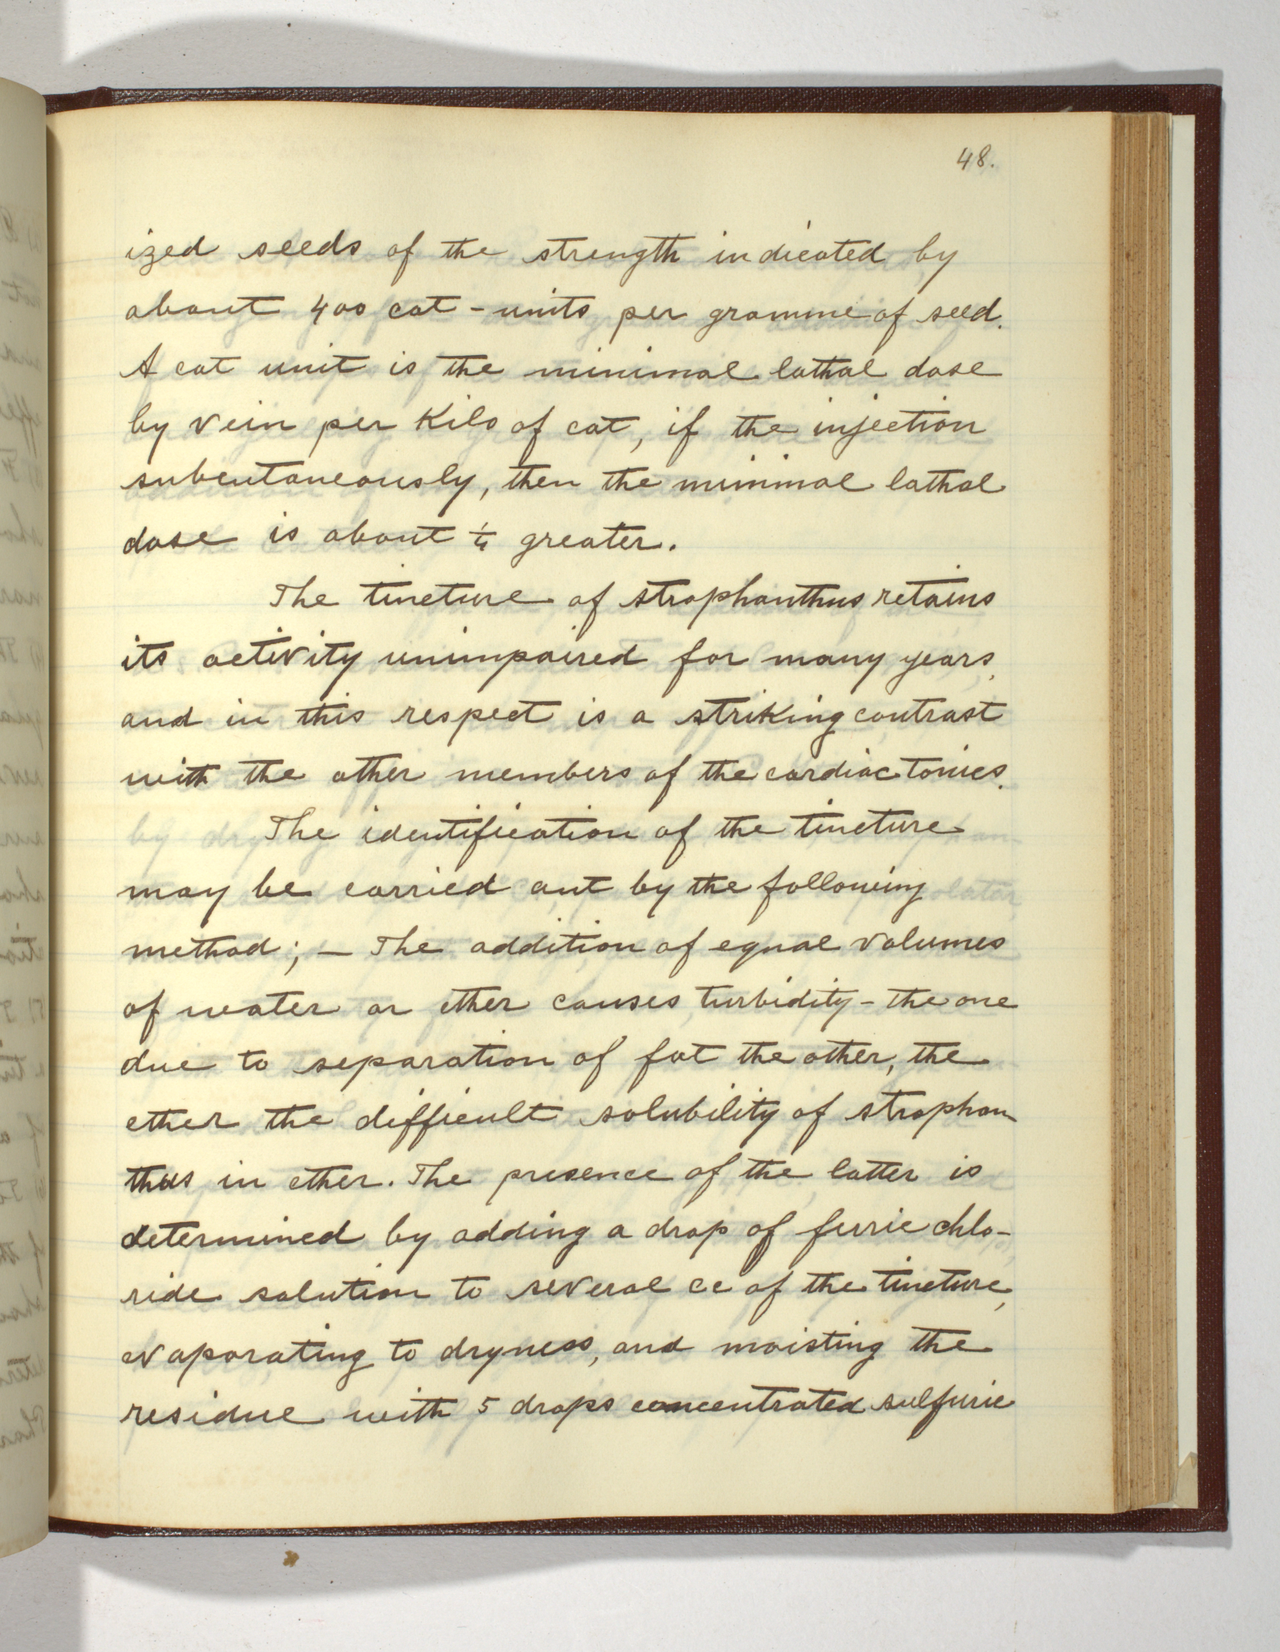 48.
ized seeds of the strength indicated by
about 400 cat-units per gramme of seed.
A cat unit is the minimal lathal dose
by vein per Kilo of cat, if the injection
subcutaneously, then the minimal lathal
dose is about 1/4 greater.
The tincture of strophanthus retains
its activity unimpaired for many years,
and in this respect is a striking contrast
with the other members of the cardiac tonics.
The identification of the tincture
may be carried out by the following
method; — The addition of equal volumes
of water or ether causes turbidity - the one
due to separation of fat the other, the
ether the difficult solubility of strophan
thus in ether. The presence of the latter is
determined by adding a drop of ferric chlo-
ride solution to several cc of the tincture,
evaporating to dryness, and moisting the
residue with 5 drops concentrated sulfuric